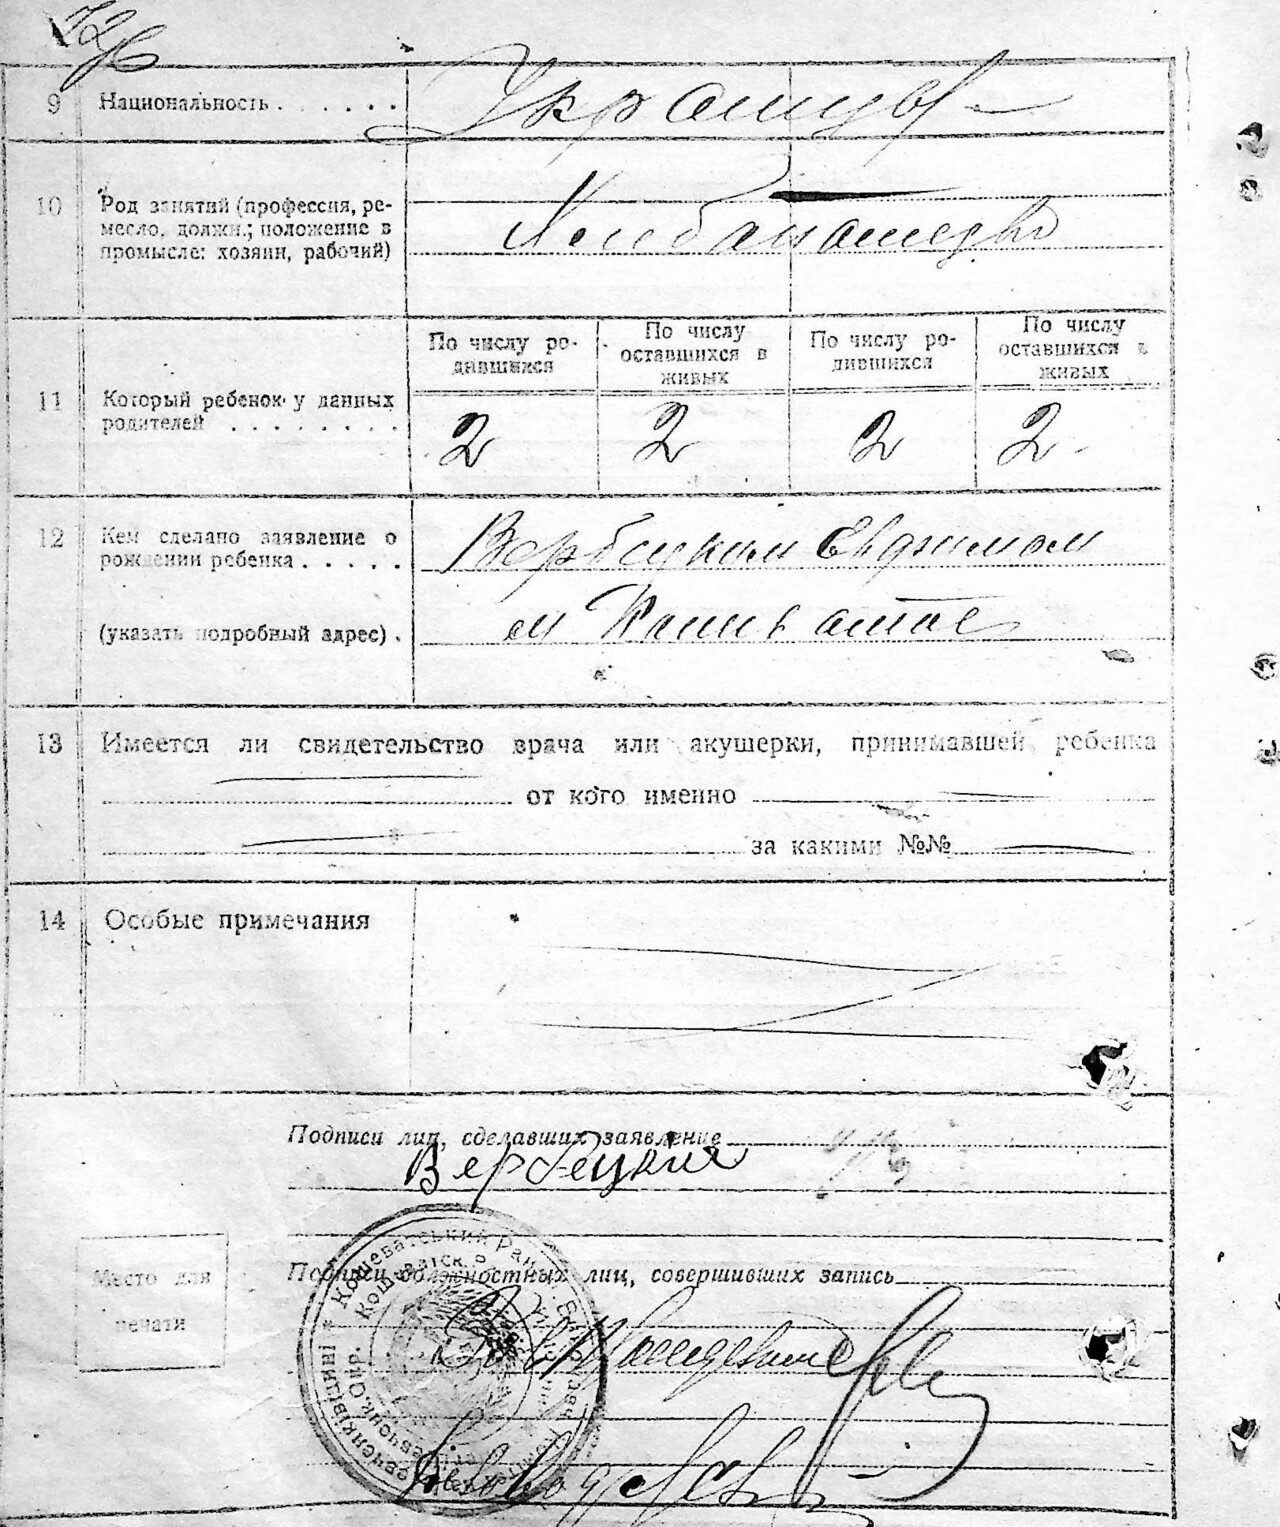 9 Национальность . . . . . . Украинцы
10 Род занятий (профессия, ре-
месло, должн.; положение в
промысле: хозяин, рабочий)
11 Который ребенок у данных
родителей . . . . . . . .
По числу ро-
дившихся
По числу
оставшихся в
живых
По числу ро-
дившихся
По числу
оставшихся в
живых
2 2 2 2
12 Кем сделано заявление о
рождении ребенка . . . . . Вербецким Евфимом
(указать подробный адрес) . м
13 Имеется ли свидетельство врача или акушерки, принимавшей ребенка
от кого именно
за какими №№
14 Особые примечания
Подписи лиц, сделавших заявление
Вербецкий
Подписи должностных лиц, совершивших запись
Место для
печати
Кошеватський Рай.